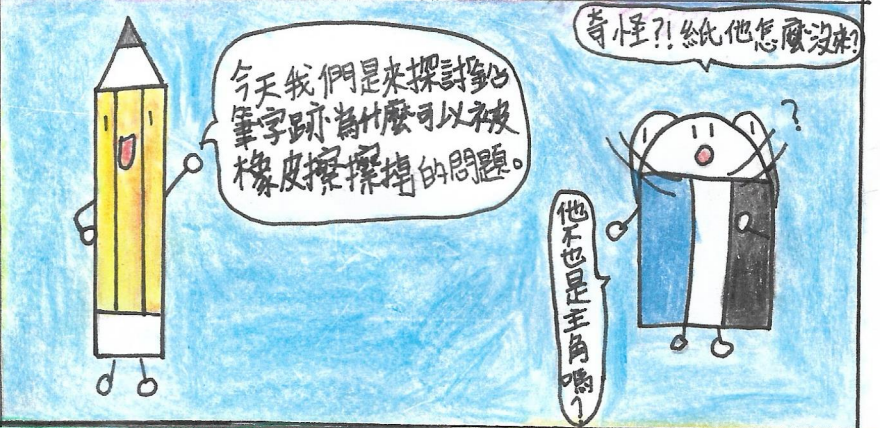 今天我們是來探討鉛
筆字跡為什麼可以被
橡皮擦擦掉的問題。
奇怪?!紙他怎麼沒來?
?
他不也是主角嗎?